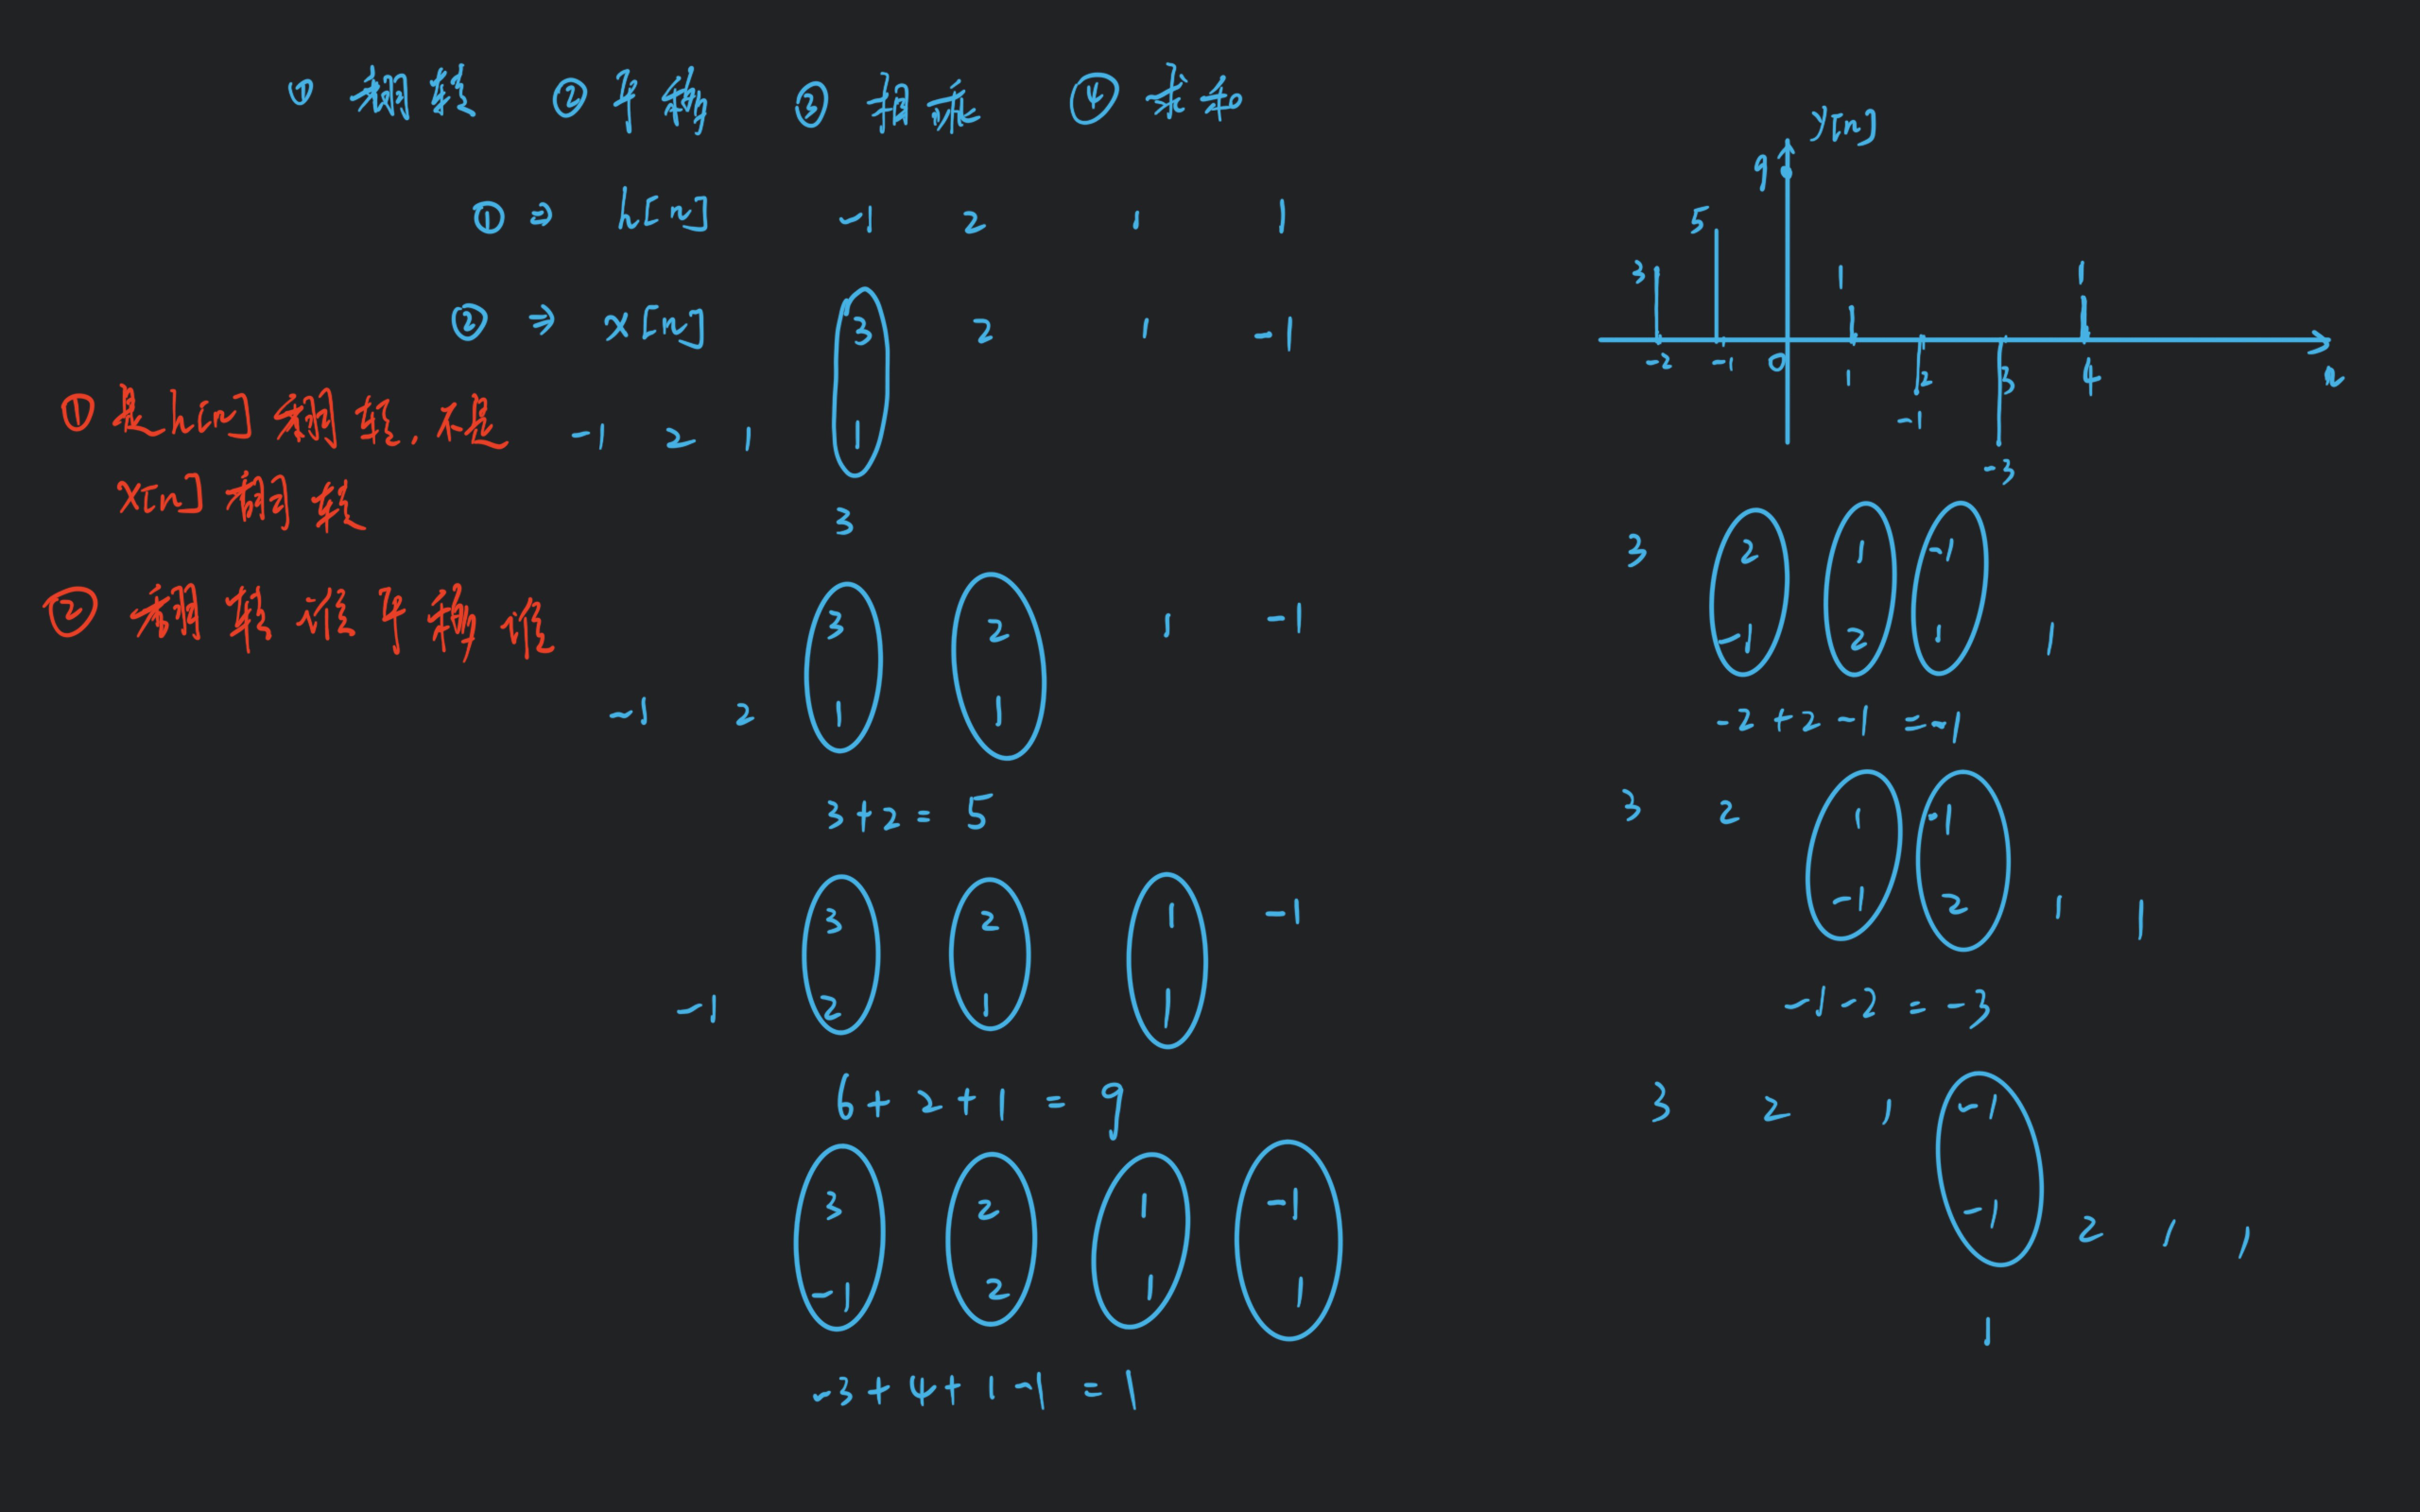 ① 翻转 ② 平移 ③ 相乘 ④ 求和
① ⇒ h[n] -1 2 1 1
② ⇒ x[n] 3 2 1 -1
-1 2 1 1
3
① 是h[n]翻转,不是
x[n]翻转
② 翻转后平移
3 2 1 -1
-1 2 1 1
3+2=5
3 2 1 -1
-1 2 1 1
6+2+1=9
3 2 1 -1
-1 2 1 1
-3+4+1-1=1
y[n]
9
5
3 1 1
-2 -1 0 1 2 3 4 n
-1
-3
3 2 1 -1
-1 2 1 1
-2+2-1=-1
3 2 1 -1
-1 2 1 1
-1-2=-3
3 2 1 -1
-1 2 1 1
1